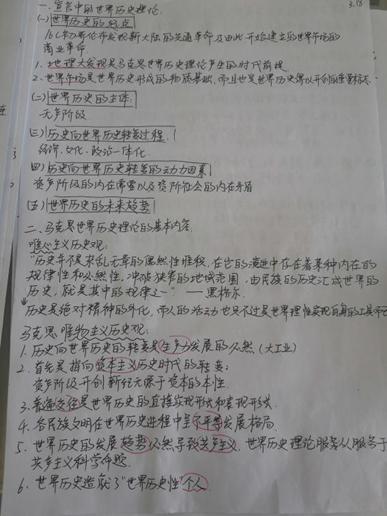 一. 宣言中的世界历史理论. 3.18
(一) 世界历史的起点
16C 新大陆的交通革命及由此开始建立的世界市场的
商业革命.
1. 地理大发现是马克思世界历史理论产生的时代前提
2. 世界市场是世界历史形成的物质基础, 而且也是世界历史得以开创的重要标志.
(二) 世界历史的主体.
无产阶级
(三) 历史向世界历史转变过程.
经济. 文化. 政治一体化.
(四) 历史向世界历史转变的动力因素
资产阶级的内在需要以及资所社会的内在矛盾
(五) 世界历史的未来趋势
二. 马克思世界历史理论的基本内容.
唯心主义历史观:
"历史并不是杂乱无章的偶然性堆积. 在它的演进中存在着某种内在的
规律性和必然性, 冲破狭隘的地域范围. 由民族的历史汇成世界的
历史, 就是其中的规律之一" —— 黑格尔.
历史是绝对精神的外化, 而人的活动也只不过是世界理性实现自身的工具
马克思 唯物主义历史观:
1. 历史向世界历史的转变是生产力发展的必然 (大工业)
2. 首先是指向资本主义历史时代的转变:
资产阶级开创新纪元源于资本的本性.
3. 普遍交往是世界历史的直接实现形式和表现形式.
4. 各民族文明在世界历史进程中呈不平等发展格局.
5. 世界历史的发展趋势必然导致共产主义. 世界历史理论服从服务于
共产主义科学命题.
6. 世界历史造就了"世界历史性"个人